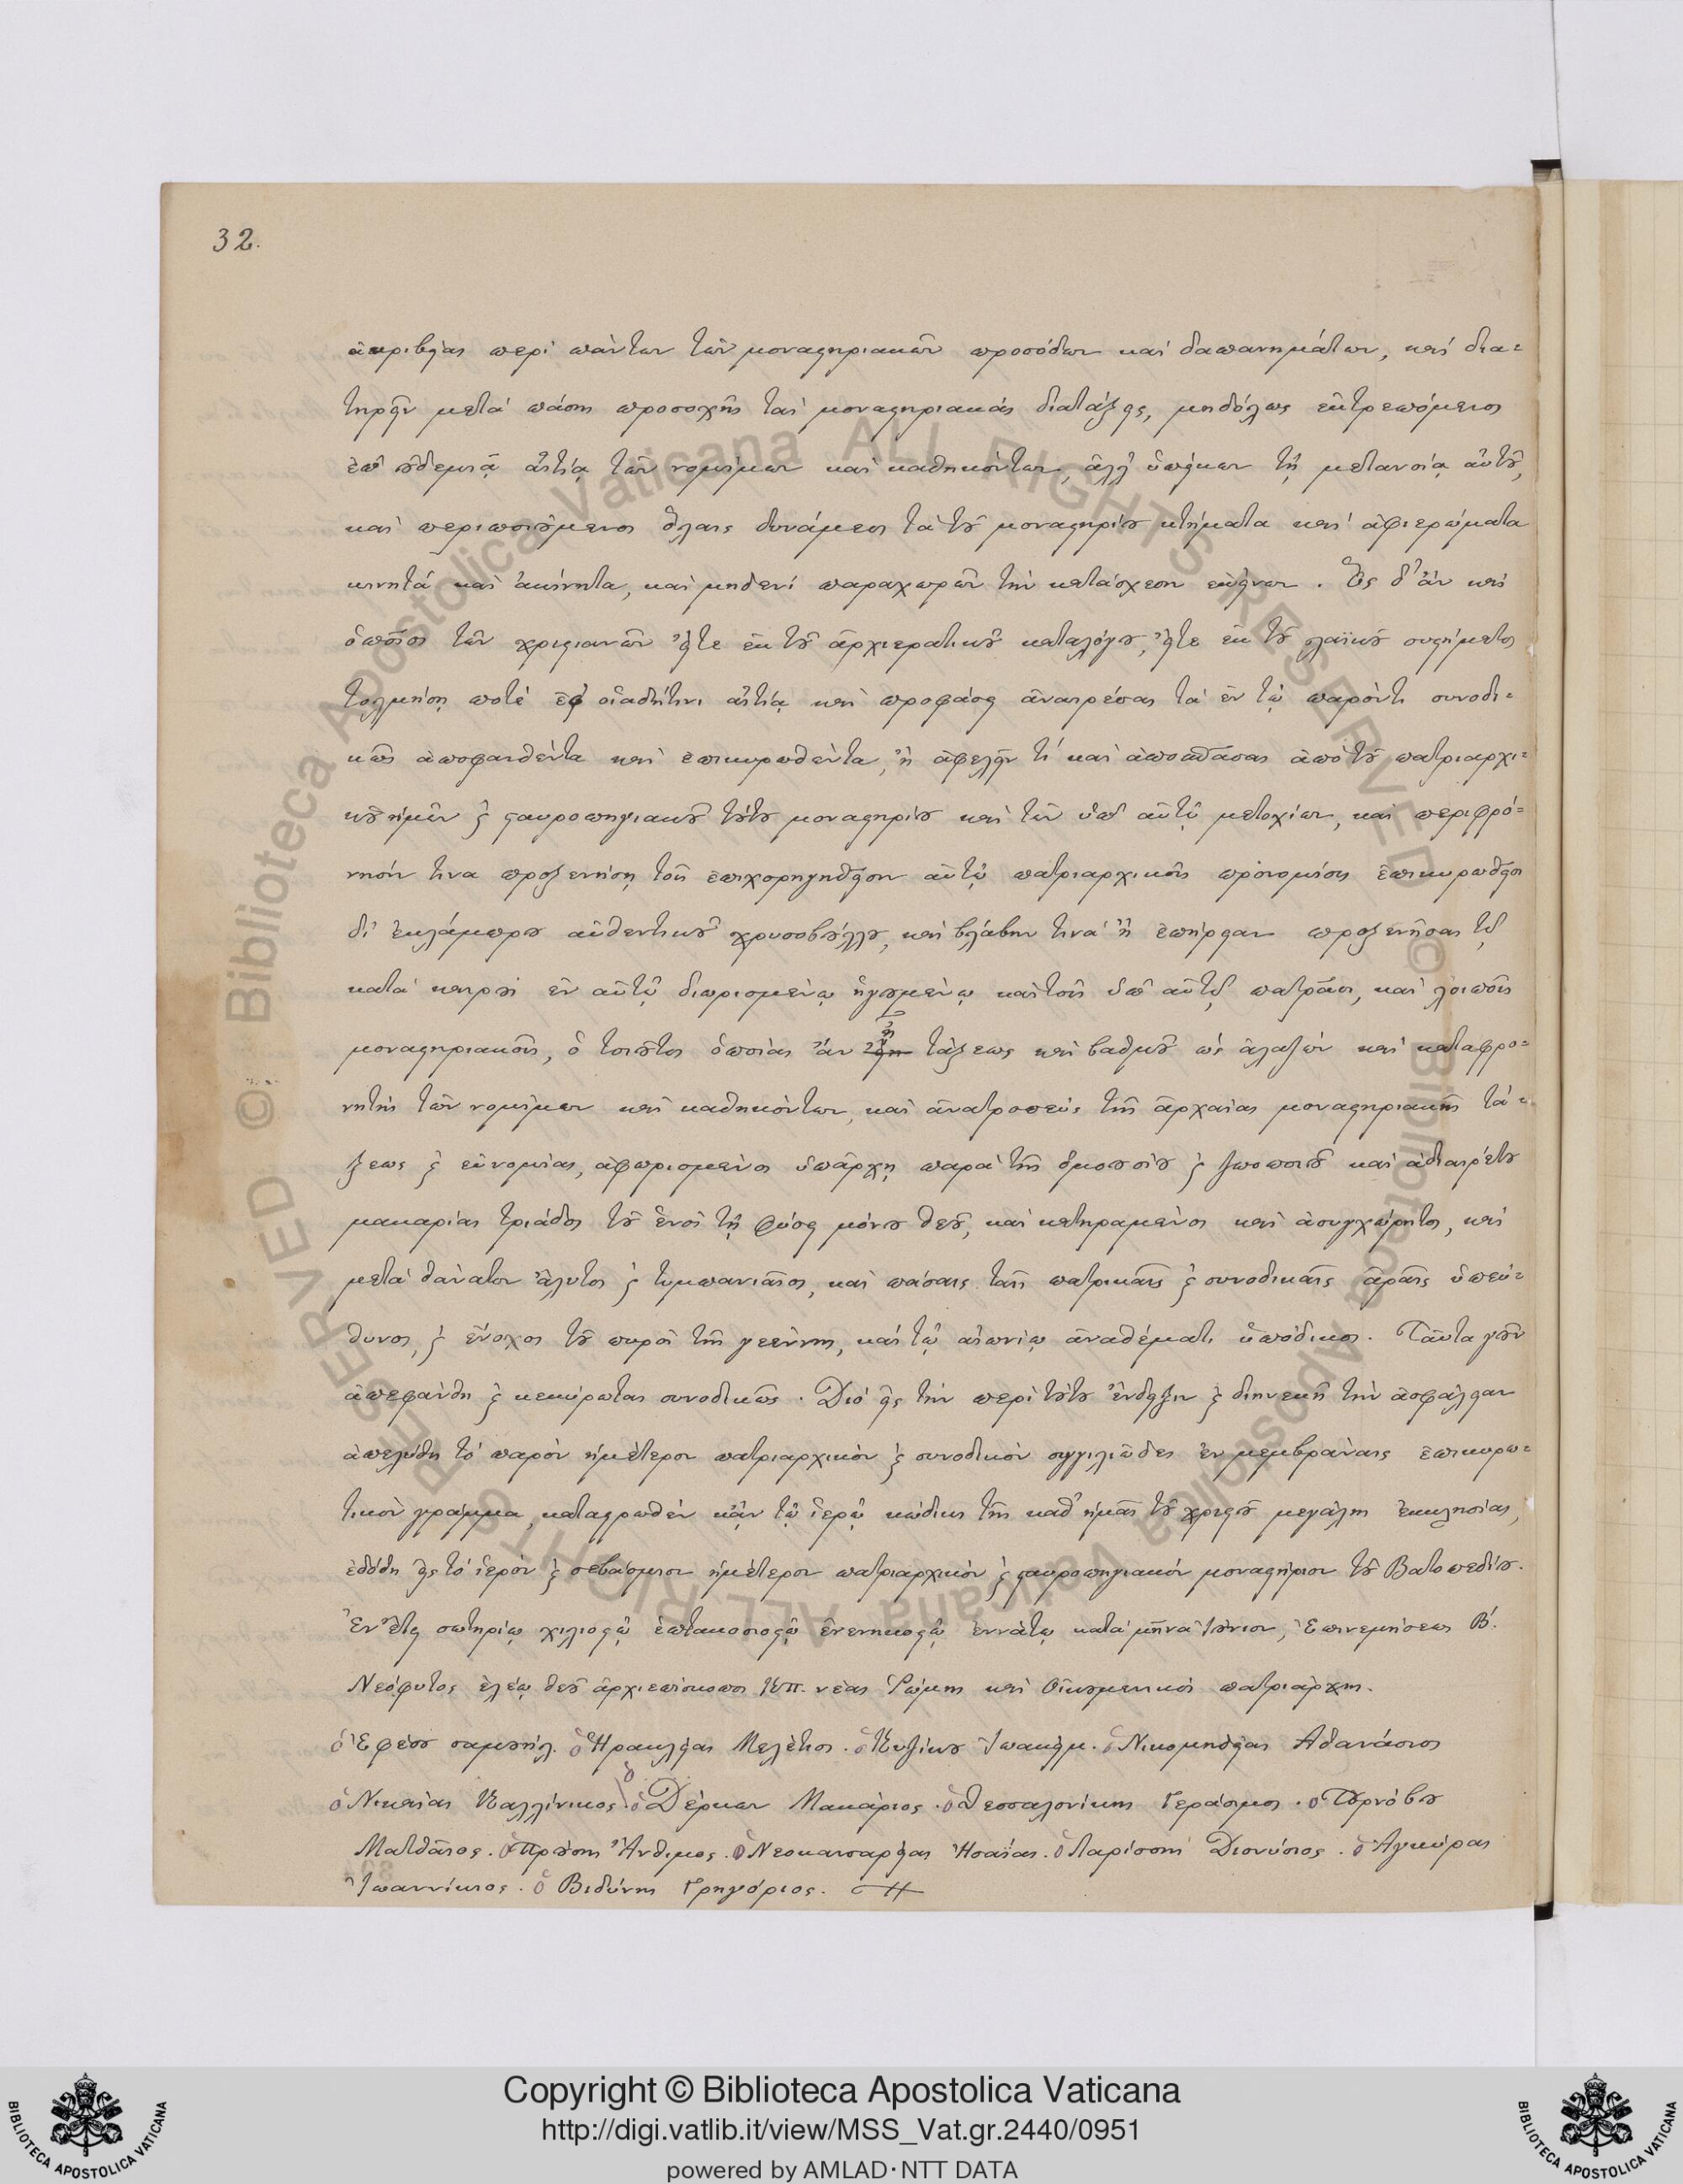 32.
ἀκριβείας περὶ πάντων τῶν μοναστηριακῶν προσόδων καὶ δαπανημάτων, καὶ δια=
τηρεῖν μετὰ πάσης προσοχῆς τὰς μοναστηριακὰς διατάξεις, μηδόλως ἐκτρεπόμενος
ἐπ' οὐδεμιᾷ αἰτίᾳ τῶν νομίμων καὶ καθηκόντων, ἀλλ' ὑπείκων τῇ μετανοίᾳ αὐτοῦ,
καὶ περιποιούμενος ὅλαις δυνάμεσι τὰ τοῦ μοναστηρίου κτήματα καὶ ἀφιερώματα
κινητὰ καὶ ἀκίνητα, καὶ μηδενὶ παραχωρῶν τὴν κατάσχεσιν ἐκείνων. Ὃς δ' ἂν καὶ
ὁποῖος τῶν χριστιανῶν εἴτε ἐκ τοῦ ἀρχιερατικοῦ καταλόγου, εἴτε ἐκ τοῦ λαϊκοῦ συστήματος
τολμήσῃ ποτὲ ἐφ' οἱαδήτινι αἰτίᾳ καὶ προφάσει ἀναιρέσαι τὰ ἐν τῷ παρόντι συνοδι=
κῶς ἀποφανθέντα καὶ ἐπικυρωθέντα, ἢ ἀφελεῖν τί καὶ ἀποσπάσαι ἀπὸ τοῦ πατριαρχι=
κοῦ ἡμῶν ϗ σταυροπηγιακοῦ τούτου μοναστηρίου καὶ τῶν ὑπ' αὐτῷ μετοχίων, καὶ περιφρό=
νησίν τινα προξενήσῃ τοῖς ἐπιχορηγηθεῖσιν αὐτῷ πατριαρχικοῖς προνομίοις ἐπικυρωθεῖσι
δι' ἐκλάμπρου αὐθεντικοῦ χρυσοβούλλου, καὶ βλάβην τινὰ ἢ ἐπήρειαν προξενῆσαι τῷ
κατὰ καιροὺς ἐν αὐτῷ διωρισμένῳ ἡγουμένῳ καὶ τοῖς ὑπ' αὐτῷ πατράσι, καὶ λοιποῖς
μοναστηριακοῖς, ὁ τοιοῦτος ὁποίας ἂν εἴη τάξεως καὶ βαθμοῦ ὡς ἀλαζὼν καὶ καταφρο=
νητὴς τῶν νομίμων καὶ καθηκόντων, καὶ ἀνατροπεὺς τῆς ἀρχαίας μοναστηριακῆς τά=
ξεως ϗ εὐνομίας, ἀφωρισμένος ὑπάρχῃ παρὰ τῆς ὁμοουσίου ϗ ζωοποιοῦ καὶ ἀδιαιρέτου
μακαρίας τριάδος τοῦ ἑνὸς τῇ φύσει μόνου θεοῦ, καὶ κατηραμένος καὶ ἀσυγχώρητος, καὶ
μετὰ θάνατον ἄλυτος ϗ τυμπανιαῖος, καὶ πάσαις ταῖς πατρικαῖς ϗ συνοδικαῖς ἀραῖς ὑπεύ=
θυνος, ϗ ἔνοχος τοῦ πυρὸς τῆς γεέννης, καὶ τῷ αἰωνίῳ ἀναθέματι ὑπόδικος. Ταῦτα γοῦν
ἀπεφάνθη ϗ κεκύρωται συνοδικῶς. Διὸ εἰς τὴν περὶ τούτου ἔνδειξιν ϗ διηνεκῆ τὴν ἀσφάλειαν
ἀπελύθη τὸ παρὸν ἡμέτερον πατριαρχικὸν ϗ συνοδικὸν σιγγιλιῶδες ἐν μεμβράναις ἐπικυρω=
τικὸν γράμμα, καταστρωθὲν κἀν τῷ ἱερῷ κώδικι τῆς καθ' ἡμᾶς τοῦ χριστοῦ μεγάλης ἐκκλησίας,
ἐδόθη εἰς τὸ ἱερὸν ϗ σεβάσμιον ἡμέτερον πατριαρχικὸν ϗ σταυροπηγιακὸν μοναστήριον τοῦ Βατοπεδίου.
Ἐν ἔτει σωτηρίῳ χιλιοστῷ ἑπτακοσιοστῷ ἐνενηκοστῷ ἐννάτῳ κατὰ μῆνα Ἰούνιον, Ἐπινεμήσεως Β΄.
Νεόφυτος ἐλέῳ θεοῦ ἀρχιεπίσκοπος Κπ. νέας Ῥώμης καὶ Οἰκουμενικὸς πατριάρχης.
ὁ Ἐφέσου σαμουήλ. ὁ Ἡρακλείας Μελέτιος. ὁ Κυζίκου Ἰωακείμ. ὁ Νικομηδείας Ἀθανάσιος
ὁ Νικαίας Καλλίνικος. ὁ Δέρκων Μακάριος. ὁ Θεσσαλονίκης Γεράσιμος. ὁ Τορνόβου
Ματθαῖος. ὁ Προύσης Ἄνθιμος. ὁ Νεοκαισαρείας Ἡσαΐας. ὁ Λαρίσσης Διονύσιος. ὁ Ἀγκύρας
Ἰωαννίκιος. ὁ Βιδύνης Γρηγόριος.
Copyright © Biblioteca Apostolica Vaticana
http://digi.vatlib.it/view/MSS_Vat.gr.2440/0951
powered by AMLAD·NTT DATA